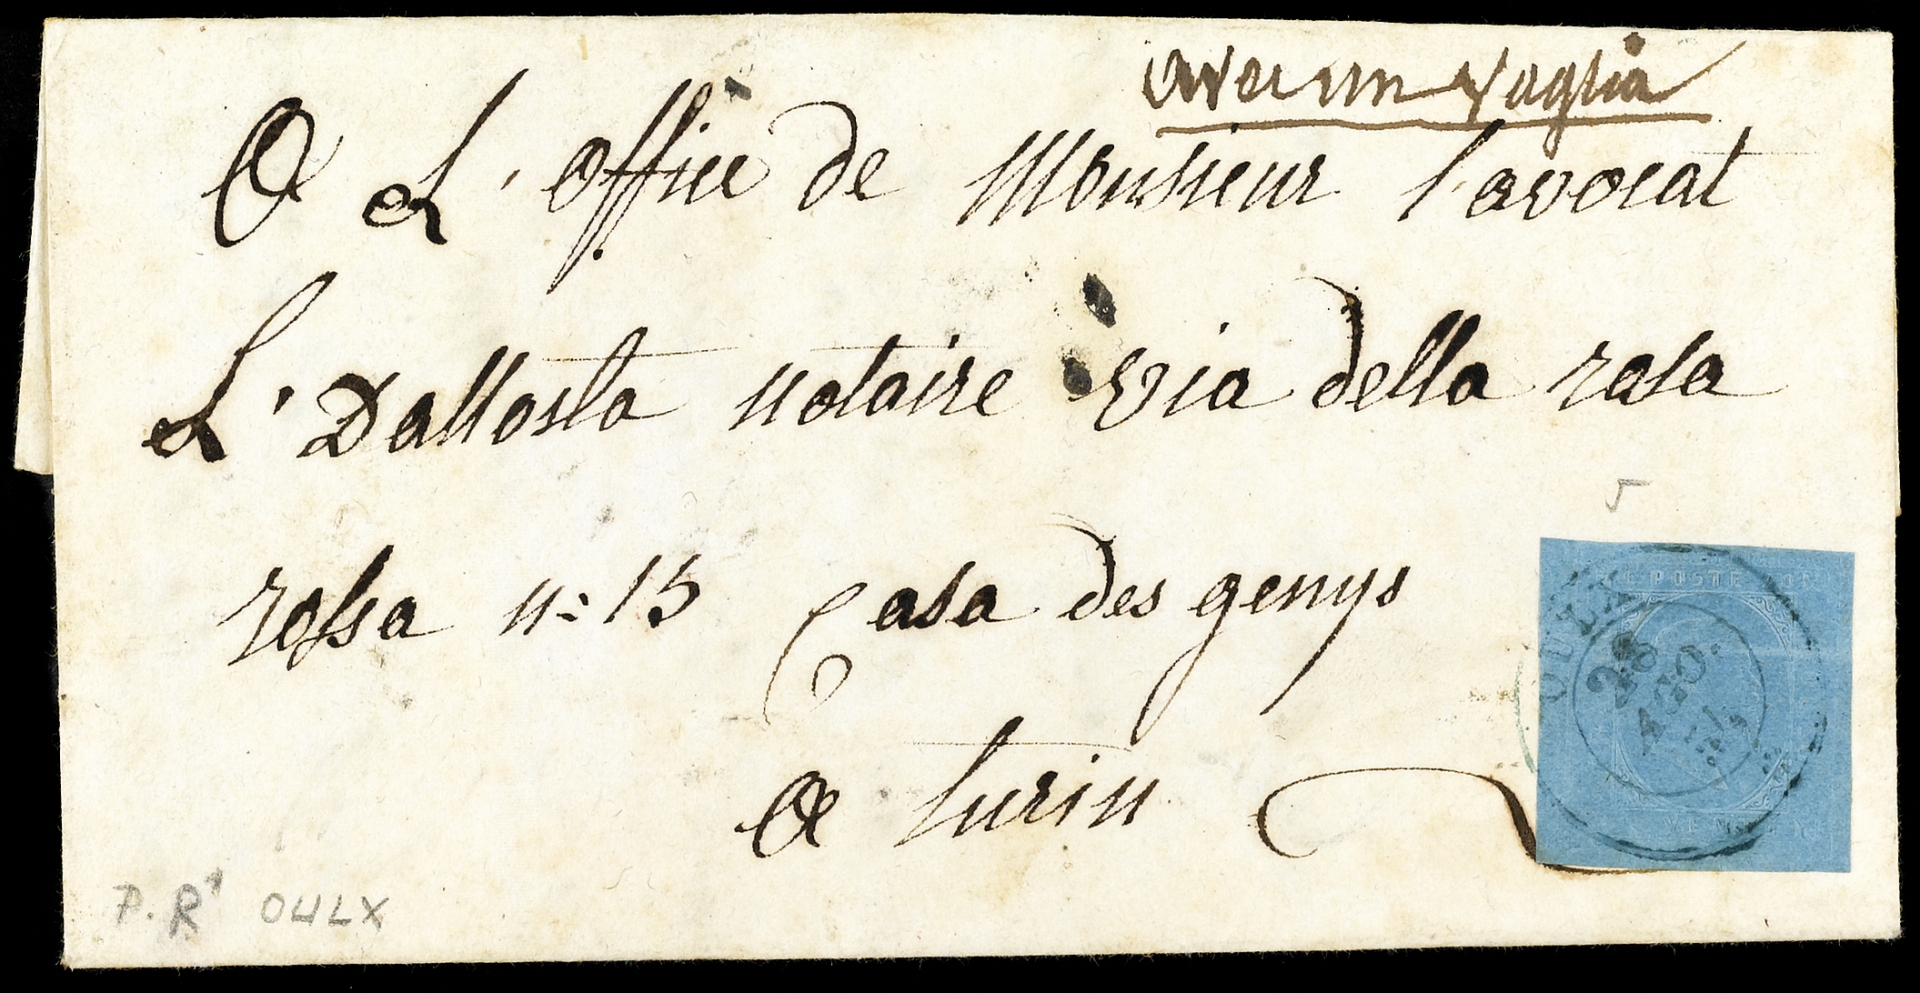 avec un vaglia
A L'office de Monsieur l'avocat
L'Dallosta notaire via della rosa
rossa n: 15 Casa des genys
a turin
5
C. POSTE
OULX
28
AGO.
P. R OULX